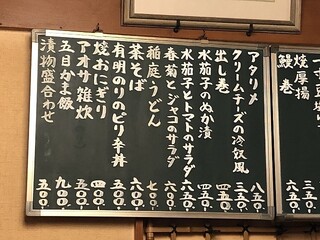 一寸豆塩
焼厚揚
鰻巻
アタリメ 八五〇
クリームチーズの冷奴風 三五〇
出し巻 四五〇
水茄子のぬか漬 四五〇
水茄子とトマトのサラダ 六五〇
春菊とジャコのサラダ 六五〇
稲庭うどん 七〇〇
茶そば 六〇〇
有明のりのピリ辛丼 五〇〇
焼おにぎり 四〇〇
アオサ雑炊 五〇〇
五目かま飯 九〇〇
漬物盛合わせ 五〇〇